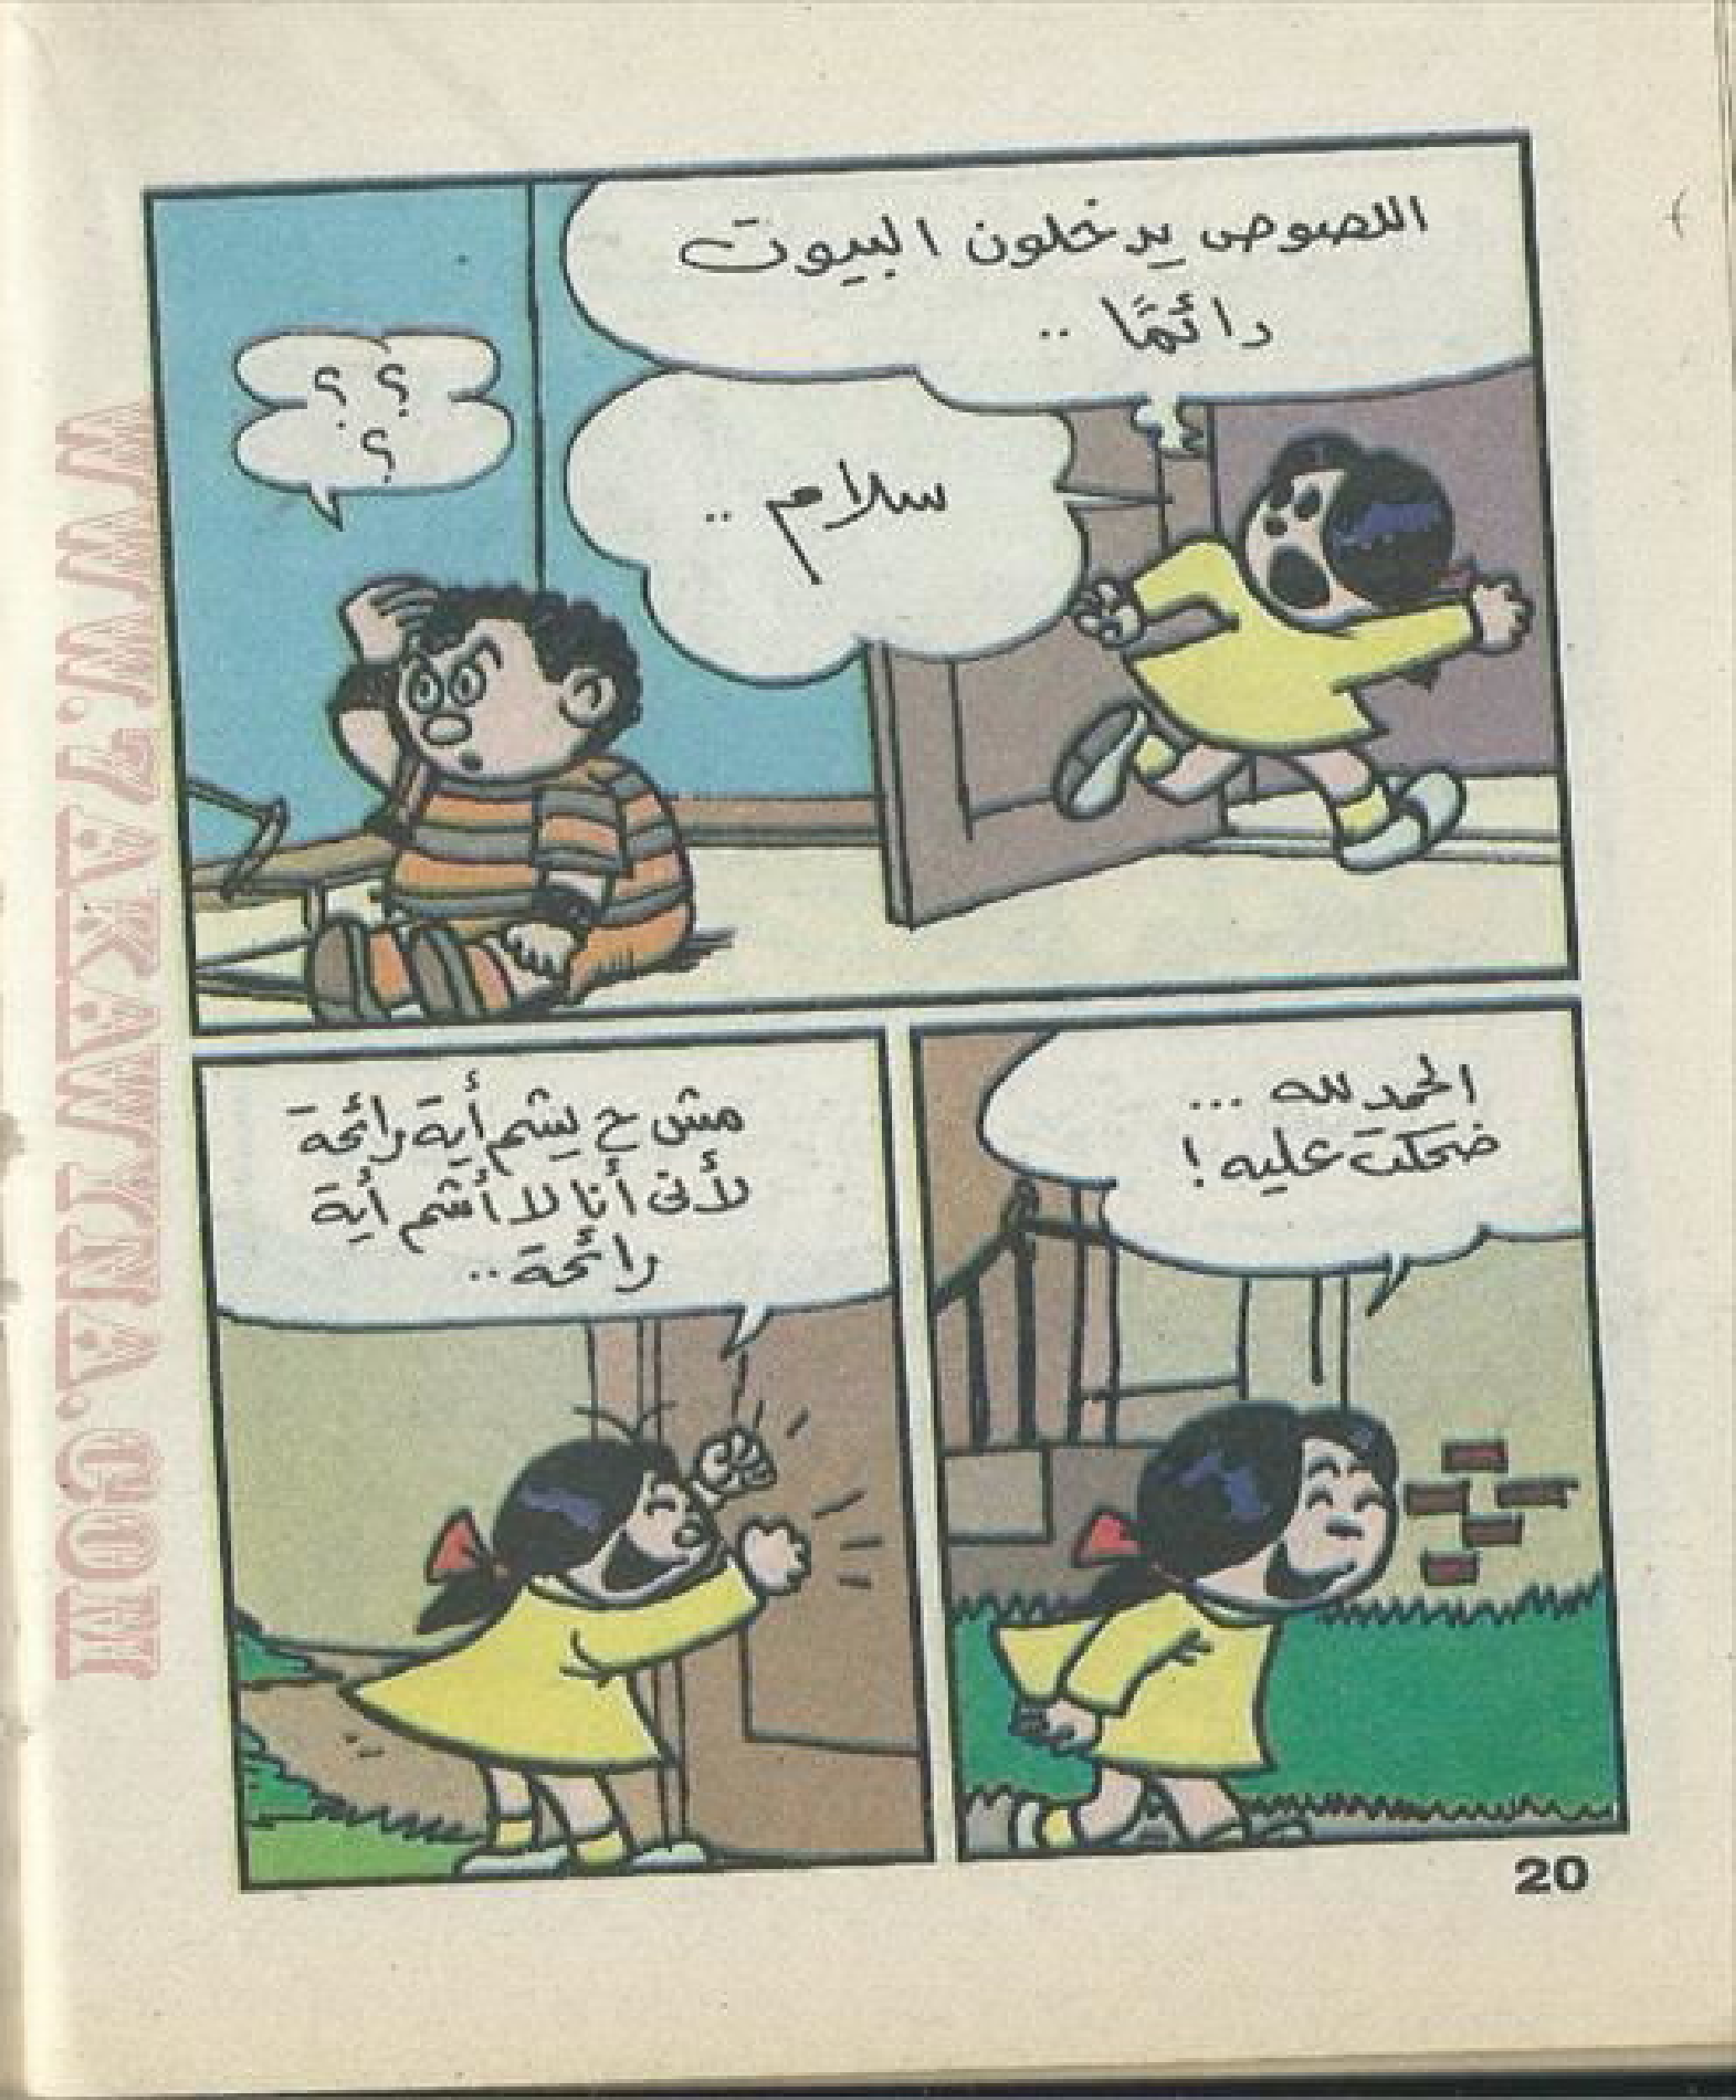 اللصوص يدخلون البيوت
دائمًا ..
سلام ..
؟ ؟
؟
الحمد لله ...
ضحكت عليه !
مش ح يشم أية رائحة
لأنى أنا لا أشم أية
رائحة ..
20
WWW.7AKAWYNA.COM